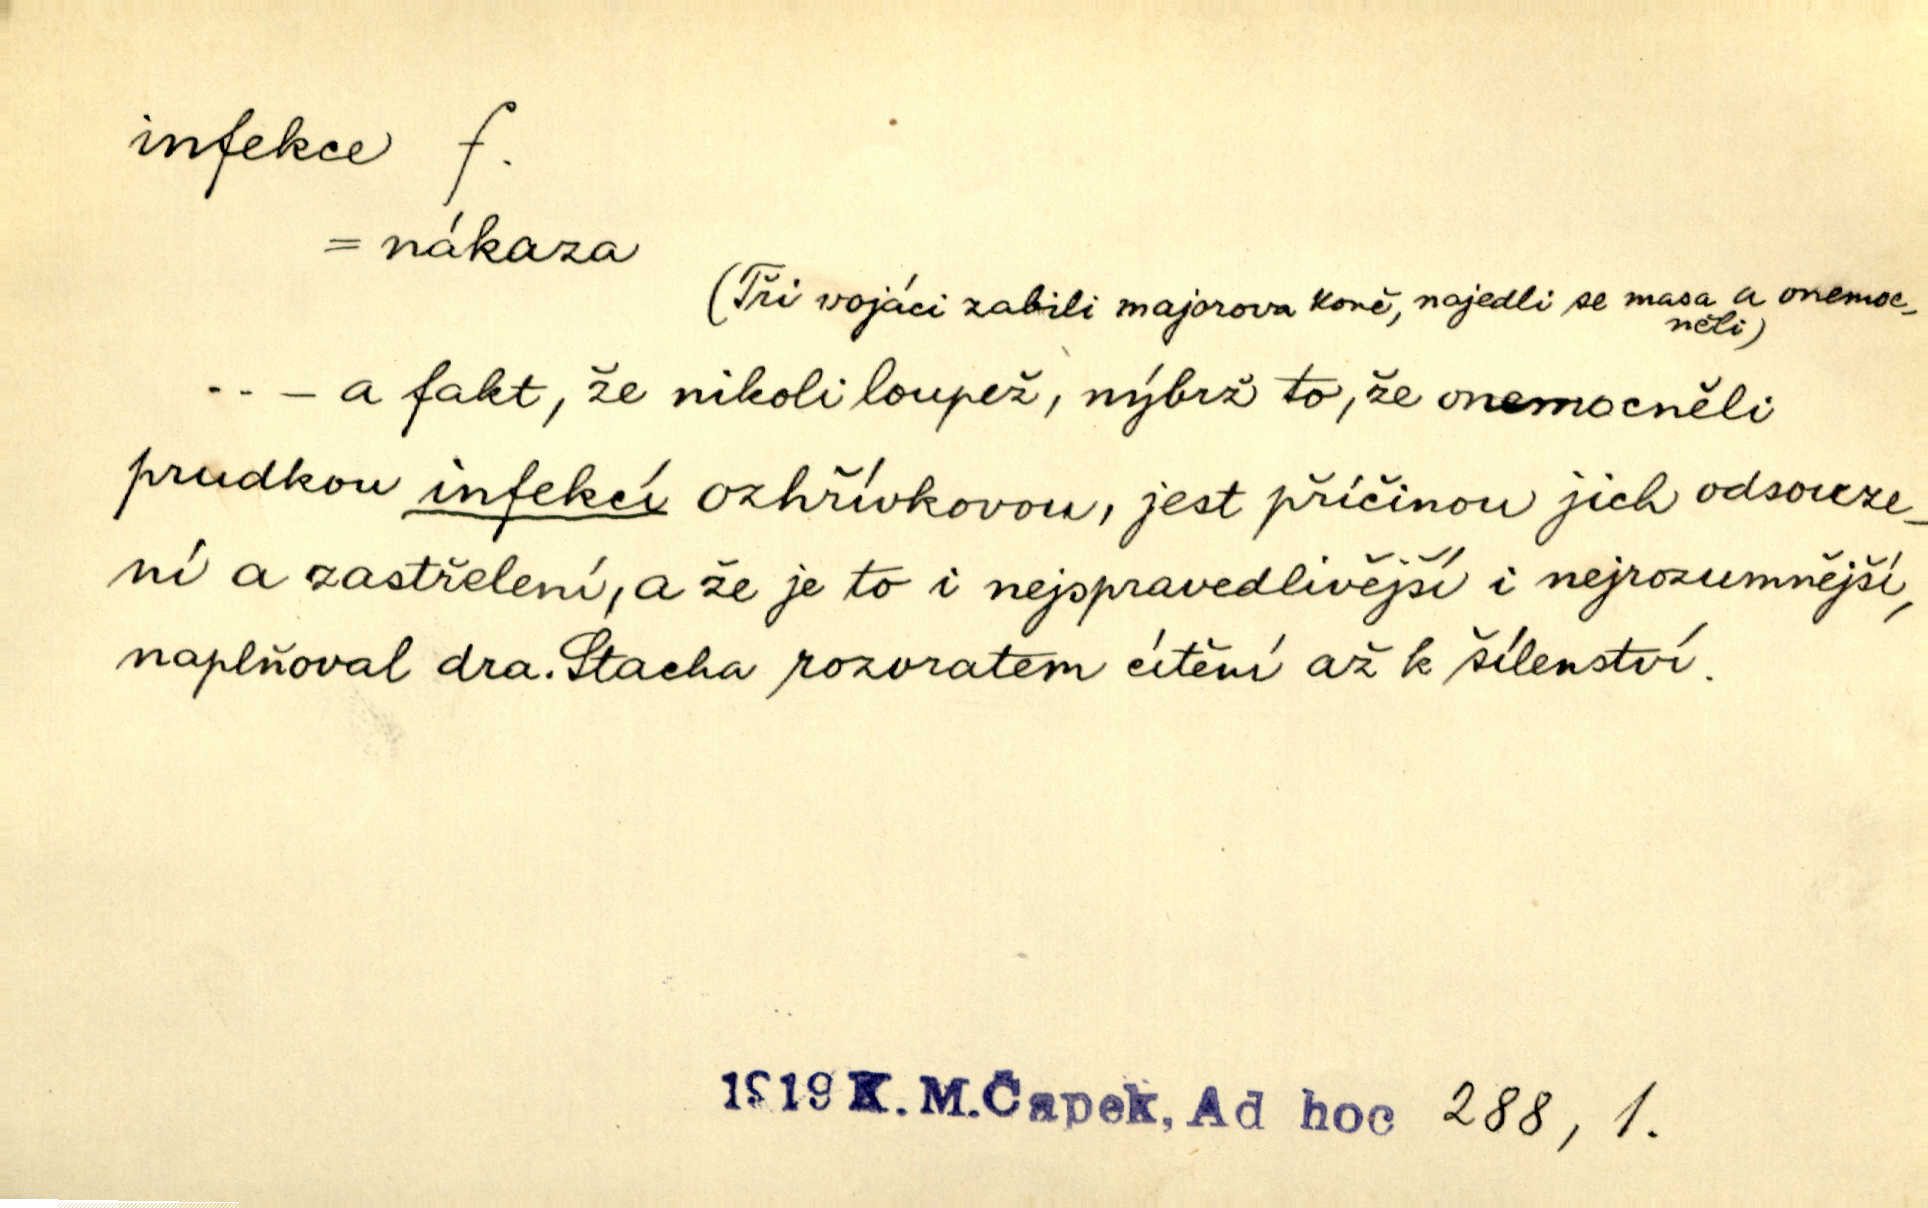 infekce f.
= nákaza
(Tři vojáci zabili majorova koně, najedli se masa a onemoc-
něli)
- - – a fakt, že nikoli loupež, nýbrž to, že onemocněli
prudkou infekcí ozhřívkovou, jest příčinou jich odsouze-
ní a zastřelení, a že je to i nejspravedlivější i nejrozumnější,
naplňoval dra. Stacha rozvratem cítění až k šílenství.
1919 K. M. Čapek, Ad hoc 288, 1.